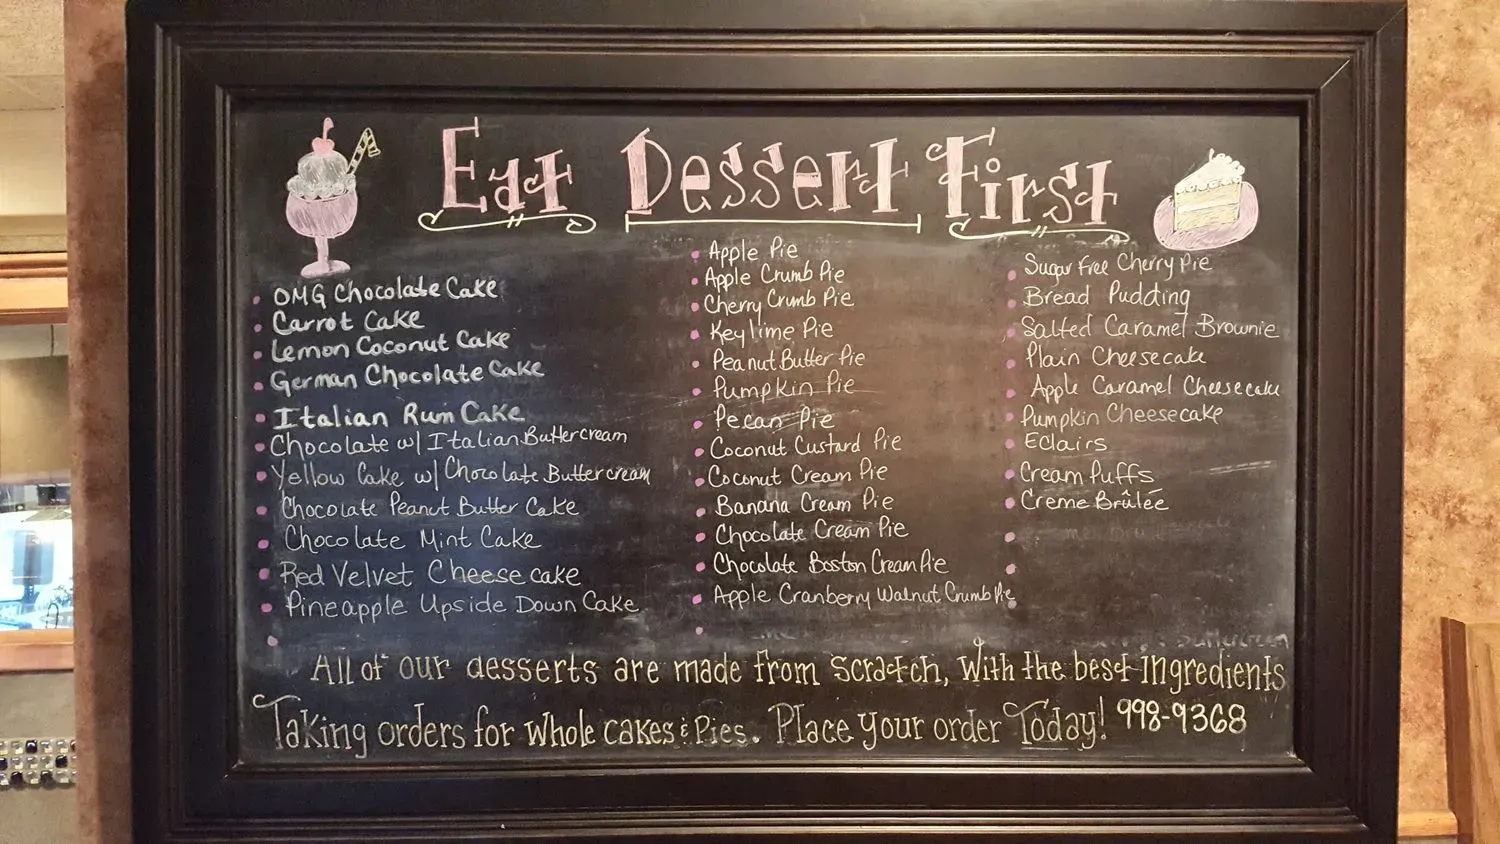 Eat Dessert First
OMG Chocolate Cake
Carrot Cake
Lemon Coconut Cake
German Chocolate Cake
Italian Rum Cake
Chocolate w/ Italian Buttercream
Yellow Cake w/ Chocolate Buttercream
Chocolate Peanut Butter Cake
Chocolate Mint Cake
Red Velvet Cheesecake
Pineapple Upside Down Cake
Apple Pie
Apple Crumb Pie
Cherry Crumb Pie
Key lime Pie
Peanut Butter Pie
Pumpkin Pie
Pecan Pie
Coconut Custard Pie
Coconut Cream Pie
Banana Cream Pie
Chocolate Cream Pie
Chocolate Boston Cream Pie
Apple Cranberry Walnut Crumb Pie
Sugar Free Cherry Pie
Bread Pudding
Salted Caramel Brownie
Plain Cheesecake
Apple Caramel Cheesecake
Pumpkin Cheesecake
Eclairs
Cream Puffs
Creme Brûlée
All of our desserts are made from scratch, with the best Ingredients
Taking orders for whole cakes & Pies. Place your order Today! 998-9368